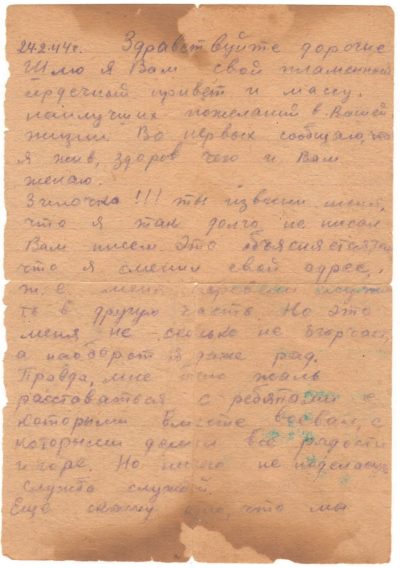 24.2.44г. Здравствуйте дорогие
Шлю я Вам свой пламенный
сердечный привет и массу
наилучших пожеланий в Вашей
жизни. Во первых сообщаю, что
я жив, здоров чего и Вам
желаю.
Зиночка!!! ты извини меня,
что я так долго не писал
Вам писем. Это
что я сменил свой адрес,
меня перевели
ть в другую часть. Но это
меня не сколько не огорчает,
а наоборот я даже рад.
Правда, мне было жаль
расставаться с ребятами с
которыми вместе воевал, с
которыми делил все радости
и горе. Но ничего не поделаешь
служба службой.
Еще скажу что мы